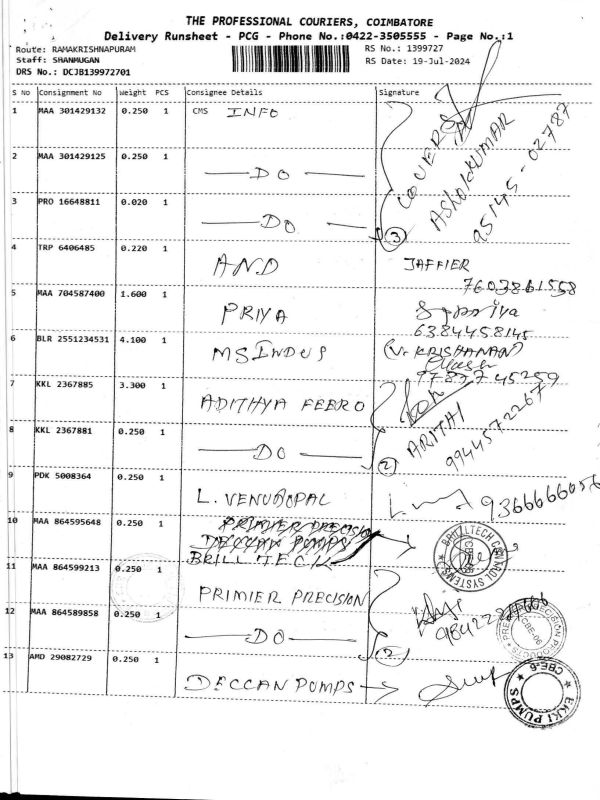 THE PROFESSIONAL COURIERS, COIMBATORE
Delivery Runsheet - PCG - Phone No.:0422-3505555 - Page No.:1
Route: RAMAKRISHNAPURAM
RS No.: 1399727
Staff: SHANMUGAN
RS Date: 19-Jul-2024
DRS No.: DCJB139972701
S No Consignment No Weight PCS Consignee Details Signature
1 MAA 301429132 0.250 1 CMS INFO
COVERS
ASHOKKUMAR
95145-02787
2 MAA 301429125 0.250 1
DO
3 PRO 16648811 0.020 1
DO
3
4 TRP 6406485 0.220 1
AND JAFFIER
7603861558
5 MAA 704587400 1.600 1
PRIYA
6384458145
6 BLR 2551234531 4.100 1
MS INDUS (V. KRISHANAN)
7 KKL 2367885 3.300 1
ADITHYA FEBRO
ARITHI
9944572267
8 KKL 2367881 0.250 1
DO
2
9 PDK 5008364 0.250 1
L. VENUGOPAL
9366666056
10 MAA 864595648 0.250 1 PRIMIER PRECISION
DECCAN PUMPS
BRILL TECH
BRILLTECH CONTROL SYSTEMS
11 MAA 864599213 0.250 1
PRIMIER PRECISION
12 MAA 864589858 0.250 1
DO
2
PRECISION PRODUCTS
CBE-06
13 AMD 29082729 0.250 1
DECCAN PUMPS
EKKI PUMPS
CBE-6